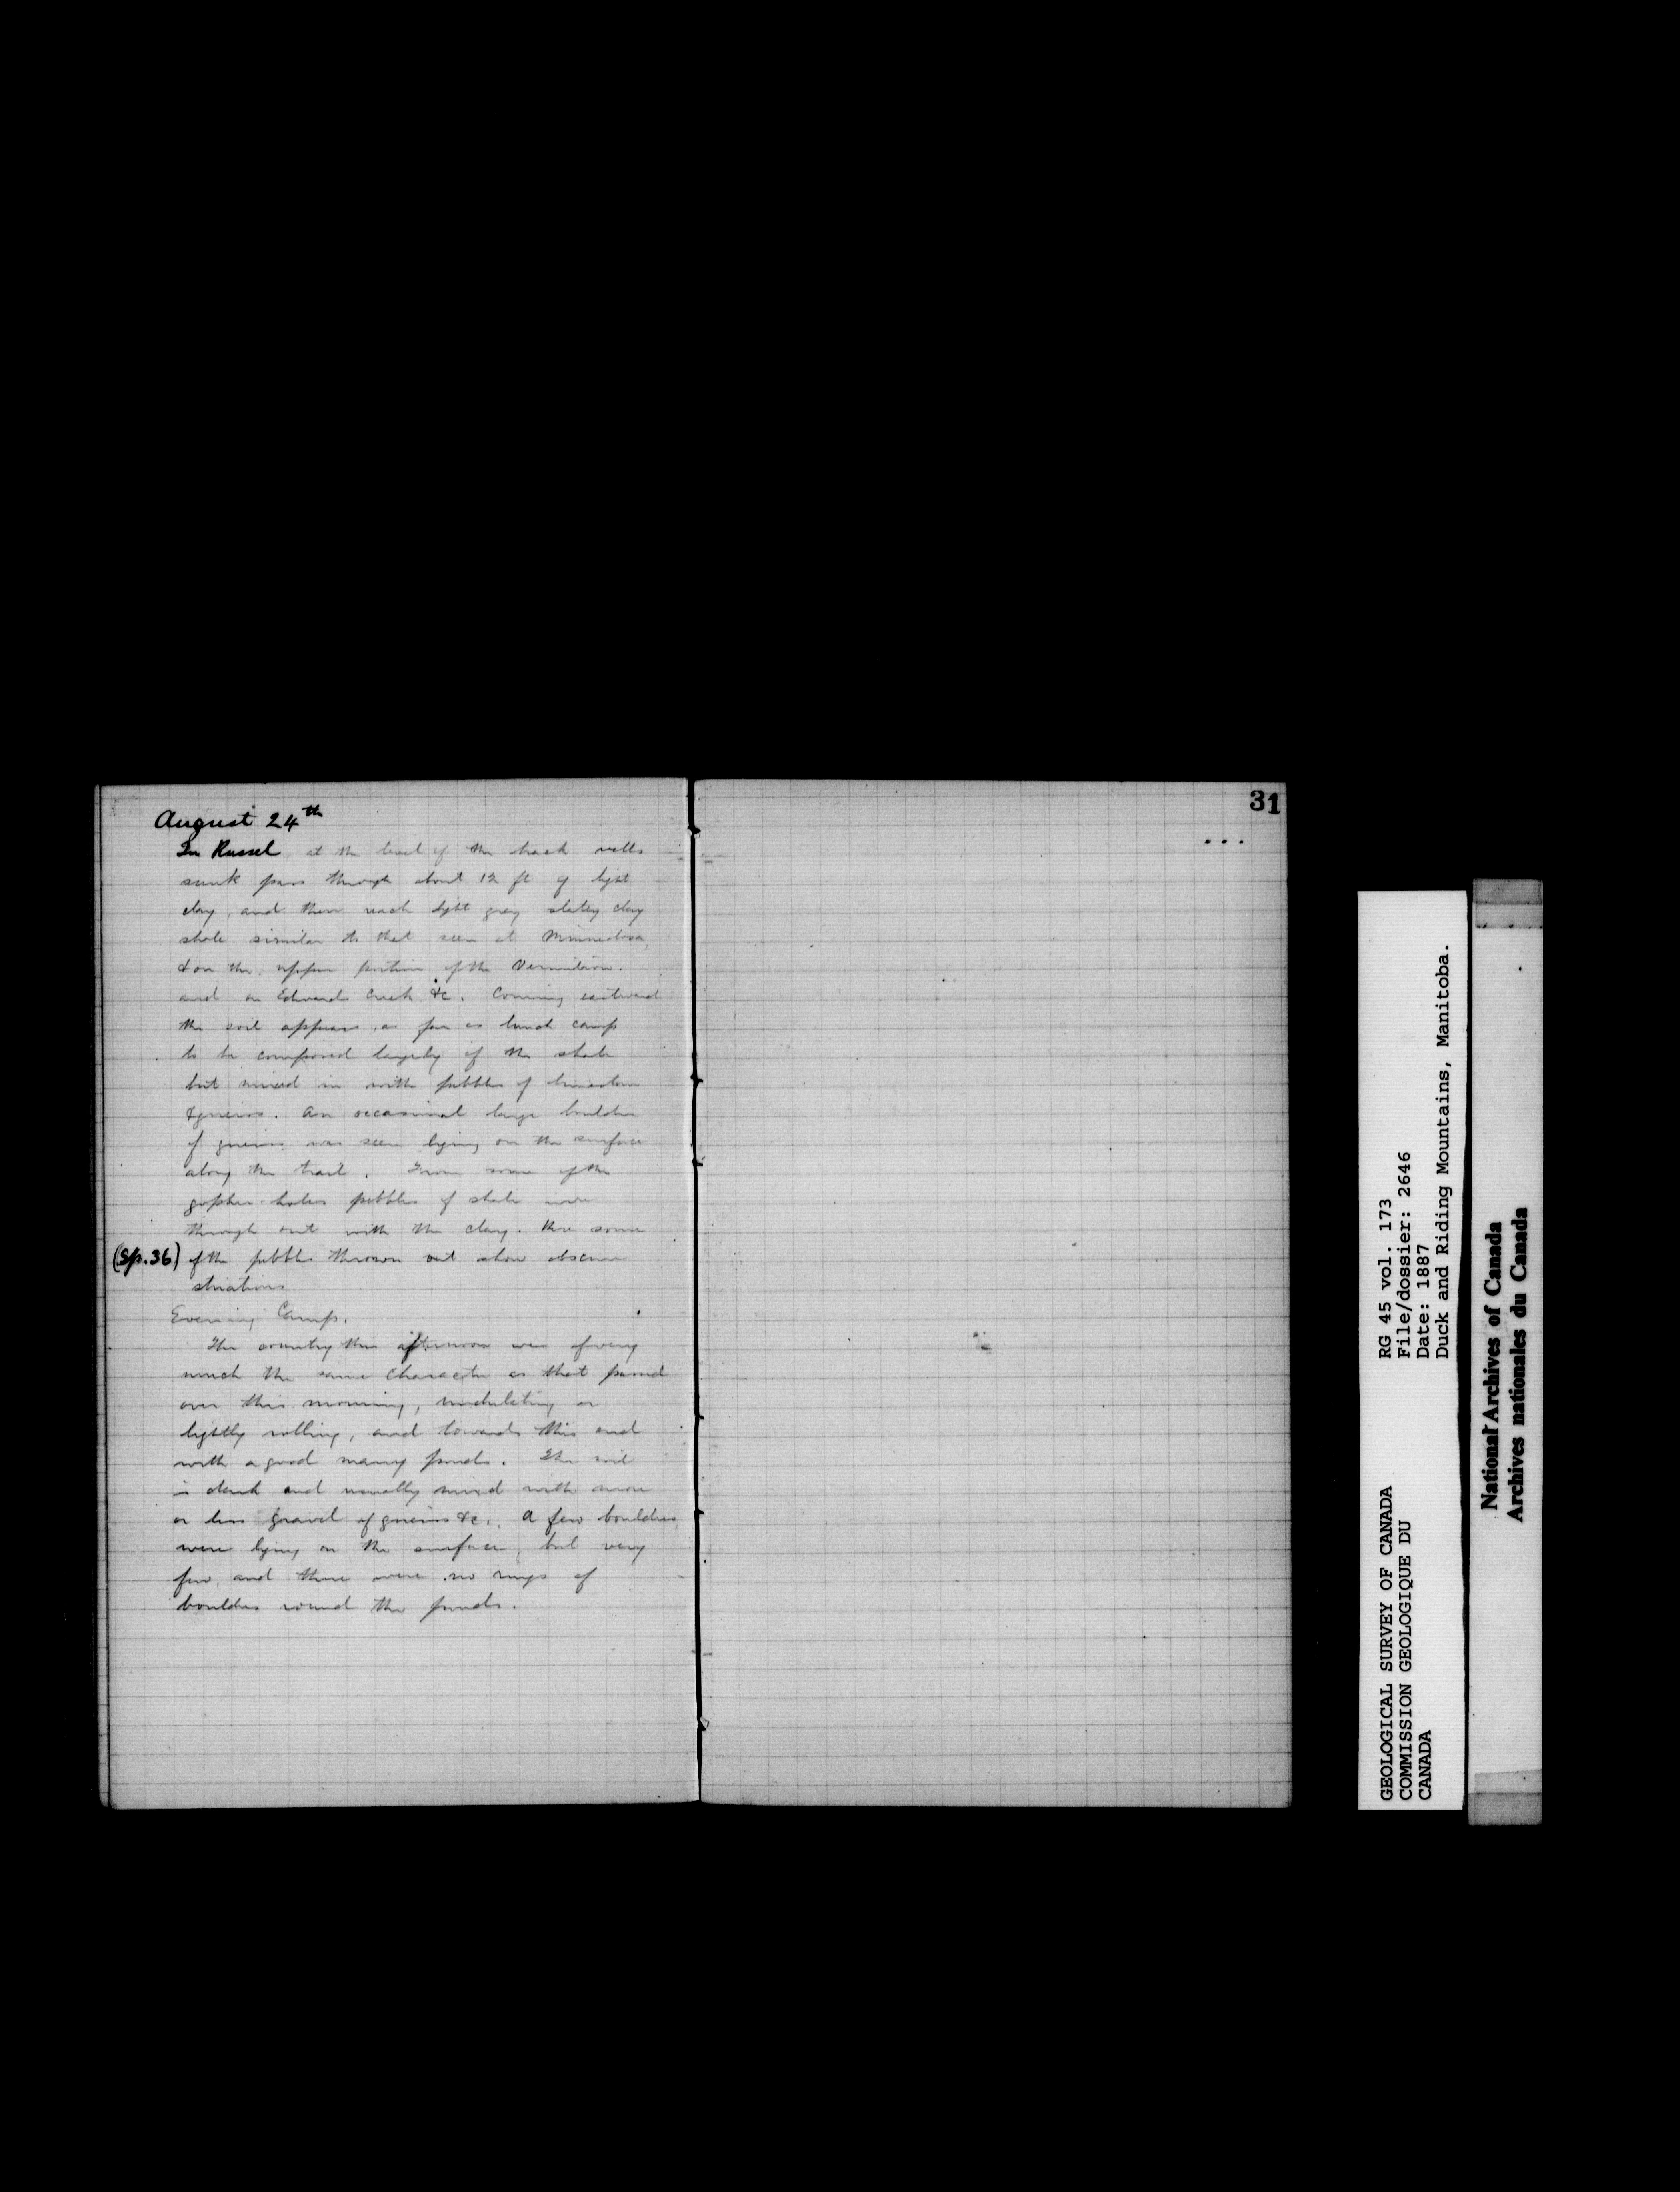 August 24th
In Russel at the level of the track wells
sunk pass through about 12 ft of light
clay, and then reach light grey slatey clay
shale similar to that seen at Minnedosa,
& on the upper portion of the Vermilion.
and on Edward Creek &c. Coming eastward
the soil appears as far as lunch camp
to be composed largely of the shale
but mixed in with pebbles of limestone
& gneiss. An occasional large boulder
of gneiss was seen lying on the surface
along the trail. From some of the
gopher holes pebbles of shale were
through out with the clay. some
(Sp. 36) of the pebbles thrown out show obscure
striations
Evening Camp.
The country this afternoon was of very
much the same character as that passed
over this morning, undulating or
lightly rolling, and towards this end
with a good many ponds. The soil
is dark and usually mixed with more
or less gravel of gneiss &c. A few boulders
were lying on the surface, but very
few, and there were no rings of
boulders round the ponds.
31
GEOLOGICAL SURVEY OF CANADA RG 45 vol. 173
COMMISSION GEOLOGIQUE DU File/dossier: 2646
CANADA Date: 1887
Duck and Riding Mountains, Manitoba.
National Archives of Canada
Archives nationales du Canada